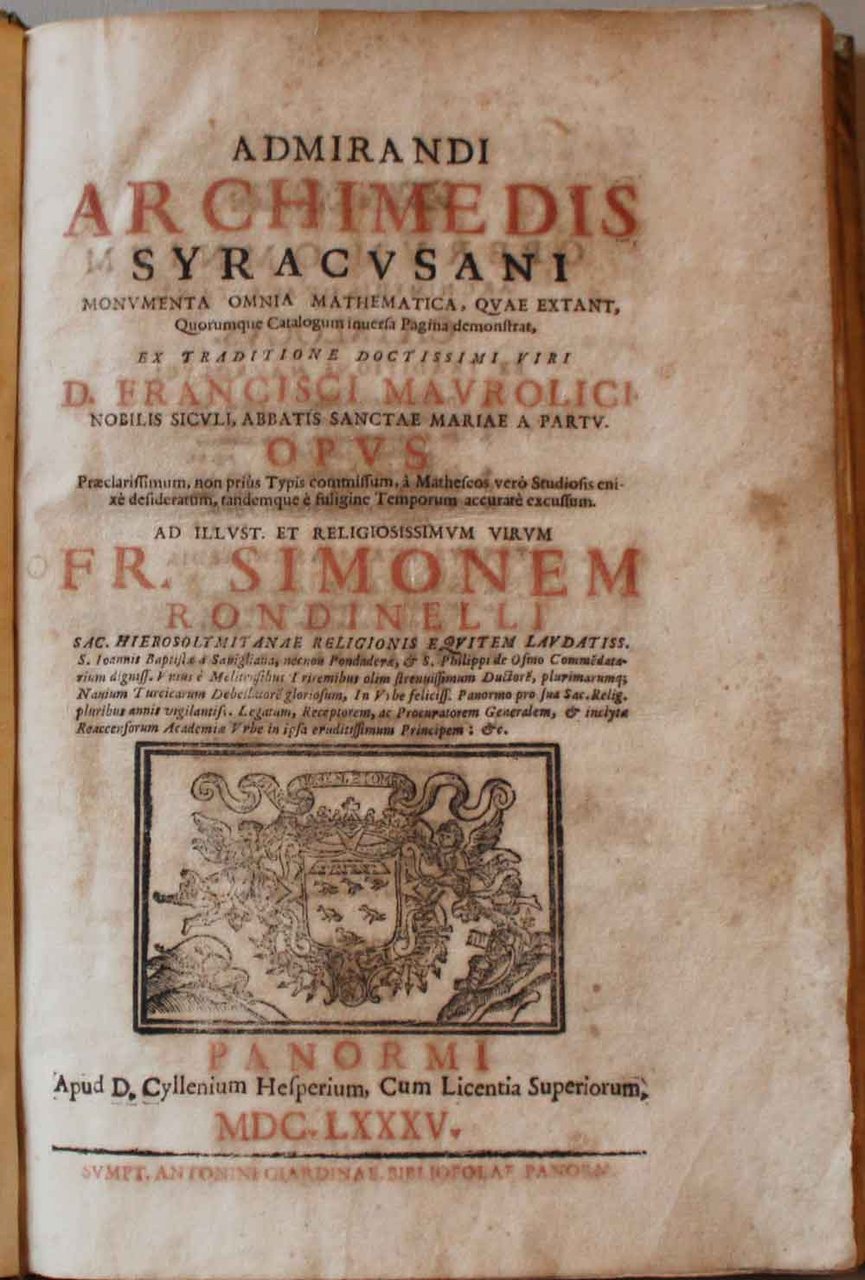 ADMIRANDI
ARCHIMEDIS
SYRACVSANI
MONVMENTA OMNIA MATHEMATICA, QVAE EXTANT,
Quorumque Catalogum inuerſa Pagina demonſtrat,
EX TRADITIONE DOCTISSIMI VIRI
D. FRANCISCI MAVROLICI
NOBILIS SICVLI, ABBATIS SANCTAE MARIAE A PARTV.
OPVS
Præclariſſimum, non priùs Typis commiſſum, à Matheſeos verò Studioſis eni-
xè deſideratum, tandemque è fuligine Temporum accuratè excuſſum.
AD ILLVST. ET RELIGIOSISSIMVM VIRVM
FR. SIMONEM
RONDINELLI
SAC. HIEROSOLYMITANAE RELIGIONIS EQVITEM LAVDATISS.
S. Ioannis Baptiſtæ à Sauigliana, necnon Pondaderæ, & S. Philippi de Oſmo Commẽdata-
rium digniſſ. Vnius è Melitenſibus Triremibus olim ſtrenuiſſimum Ductorẽ, plurimarumq;
Nauium Turcicarum glorioſum, In Vrbe feliciſſ. Panormo pro ſua Sac. Relig.
pluribus annis vigilantiſs. Legatum, Receptorem, ac Procuratorem Generalem, & inclytæ
Reaccenſorum Academiæ Vrbe in ipſa eruditiſſimum Principem; &c.
PANORMI
Apud D. Cyllenium Heſperium, Cum Licentia Superiorum,
MDC.LXXXV.
SVMPT. ANTONINI GIARDINAE BIBLIOPOLAE PANORM.